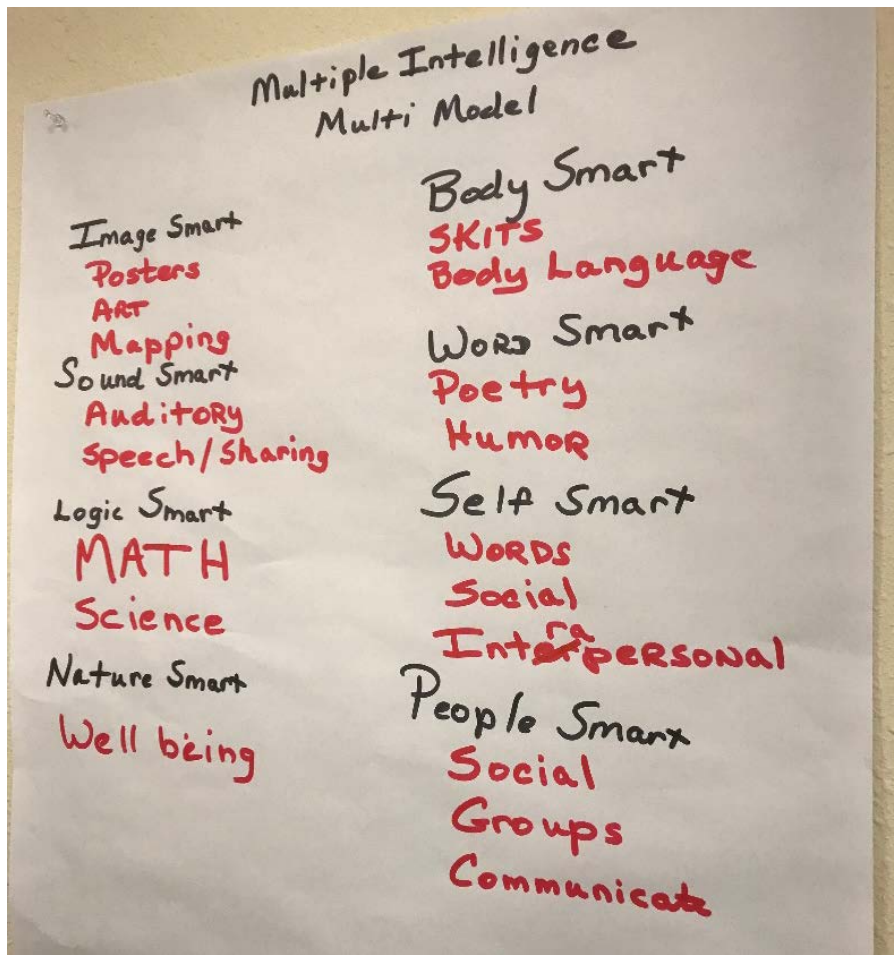 Multiple Intelligence
Multi Model
Image Smart
Posters
ART
Mapping
Sound Smart
Auditory
Speech/Sharing
Logic Smart
MATH
Science
Nature Smart
Well being
Body Smart
SKITS
Body Language
Word Smart
Poetry
Humor
Self Smart
WORDS
Social
Intrapersonal
People Smart
Social
Groups
Communicate